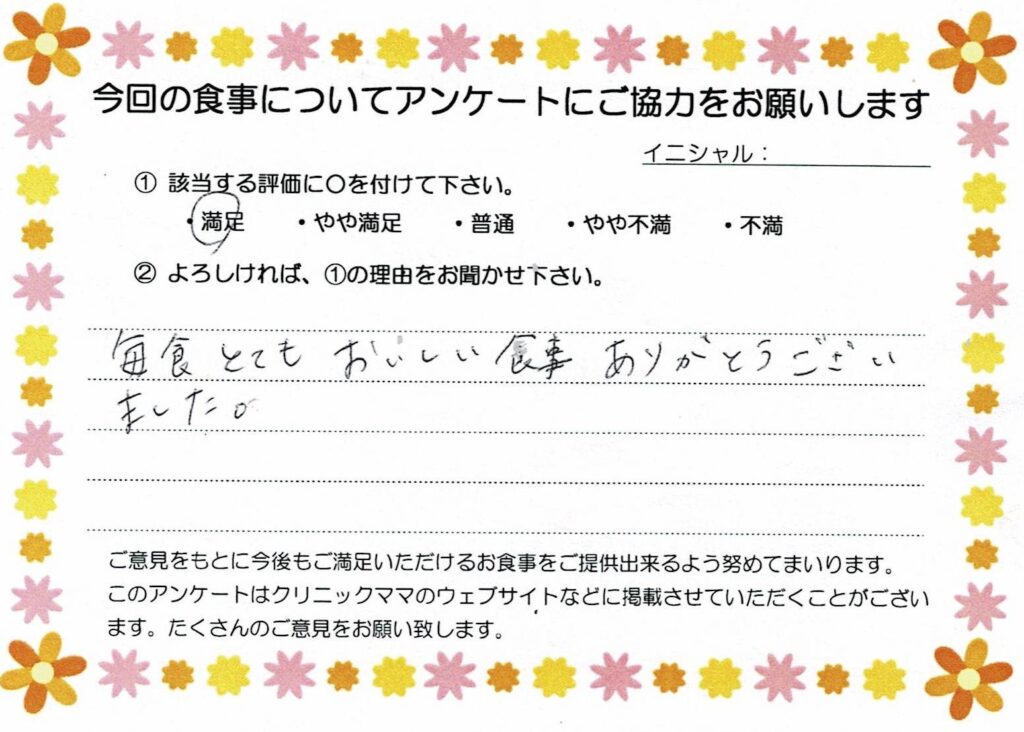 今回の食事についてアンケートにご協力をお願いします
イニシャル：
① 該当する評価に〇を付けて下さい。
・満足 ・やや満足 ・普通 ・やや不満 ・不満
② よろしければ、①の理由をお聞かせ下さい。
毎食 とても おいしい 食事 ありがとうござい
ました。
ご意見をもとに今後もご満足いただけるお食事をご提供出来るよう努めてまいります。
このアンケートはクリニックママのウェブサイトなどに掲載させていただくことがござい
ます。たくさんのご意見をお願い致します。